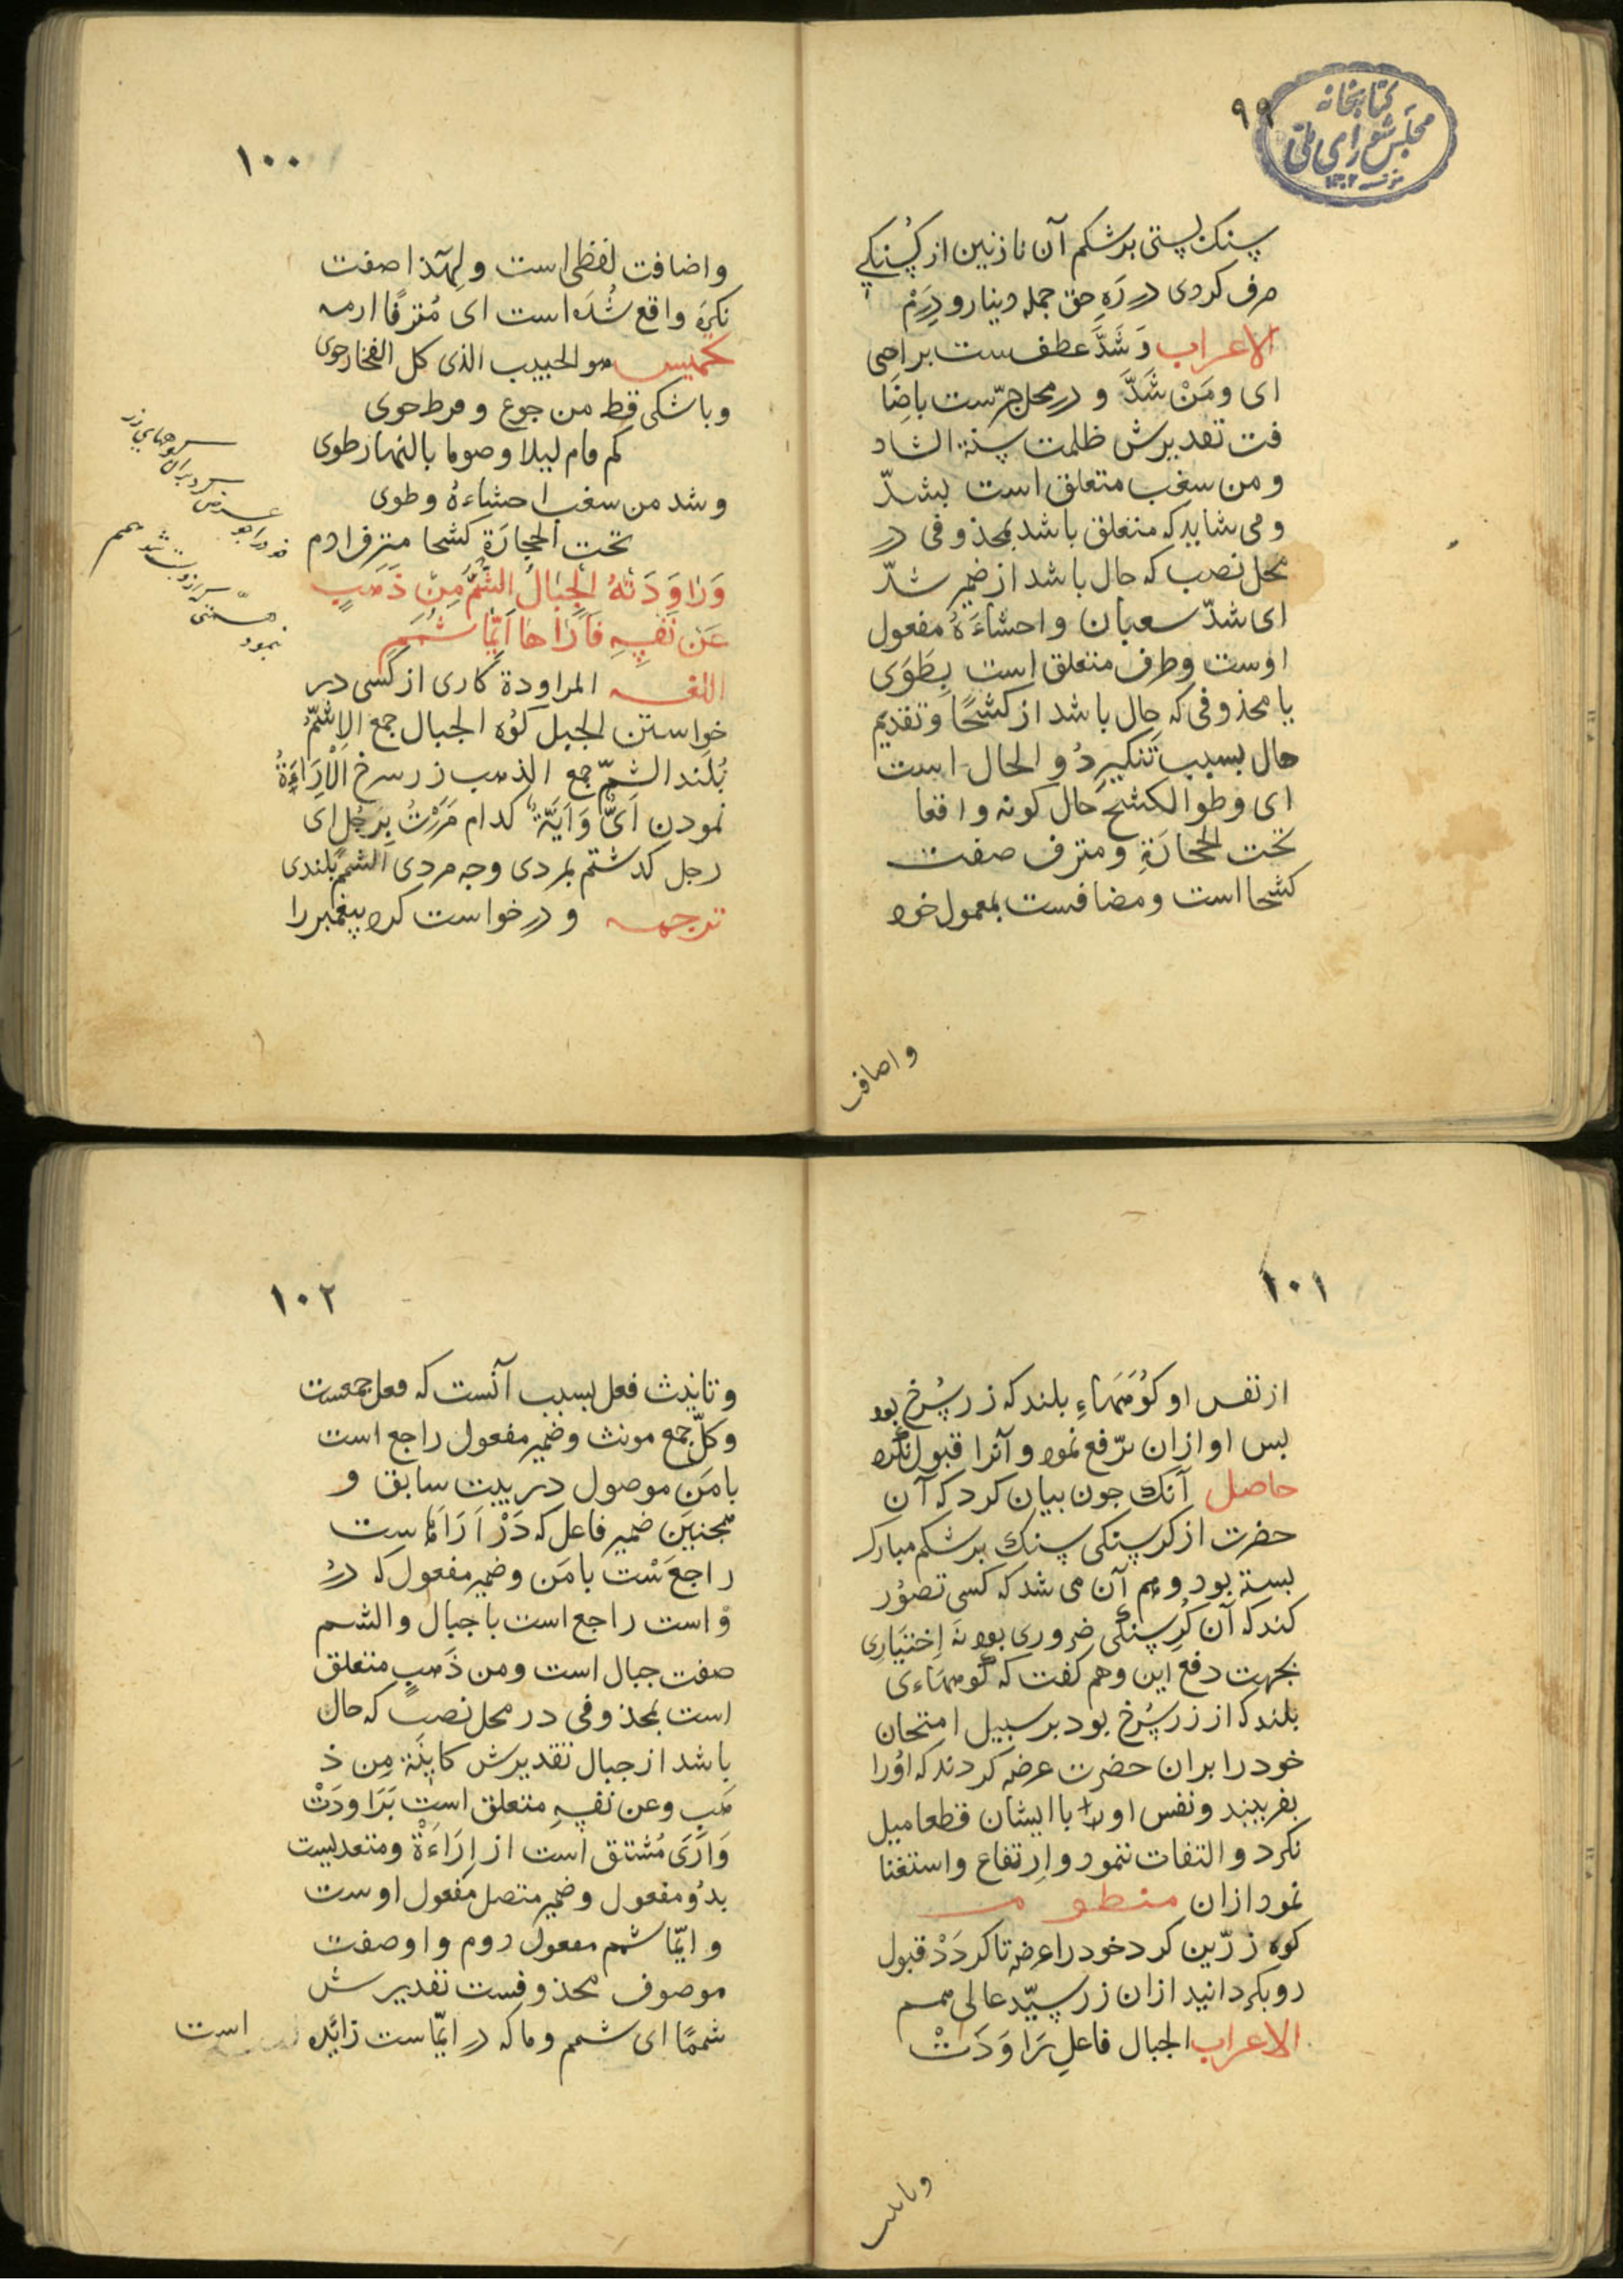 کتابخانه
مجلس شورای ملی
۹۹
سنک بستی بر شکم آن نازنین از کرسنکی
صرف کردی در ره حق جمله دینار و درم
الاعراب وَشَدَّ عطفست بر احیی
ای ومَنْ شَدَّ و در محل جرّست باضا
فت تقدیرش ظلمت سنة الشاد
ومن سغب متعلق است بشدّ
و می شاید که متعلق باشد بمحذوفی در
محل نصب که حال باشد از ضمیر شدّ
ای شدّ سعبان و احشاءَهُ مفعول
اوست وظرف متعلق است بِطَوَی
یا محذوفی که حال باشد از کشحًا وتقدیم
حال بسبب تنکیر ذو الحال است
ای وطوا لکشح حال کونه واقعا
تحت الحجارَةِ ومترف صفت
کشحا است ومضافست بمعمول خود
واضاف
۱۰۰
واضافت لفظی است ولهٰذا صفت
نکره واقع شُده است ای مُترفًا ادمه
تخمیس هو الحبیب الذی کل الفخار حوی
وباشکی قط من جوع و فرط جوی
کم قام لیلا وصوما بالنهار طوی
وشد من سغب احشاءهُ وطوی
تحت الحجارَةِ کشحا مترف ادم
وَرَاوَدَتْهُ الْجِبَالُ الشُّمُّ مِنْ ذَهَبٍ
عَنْ نَفْسِهِ فَاَرَاهَا اَیَّمَا شَمَمِ
اللغه المراودة کاری از کسی در
خواستن الجبل کوُه الجبال جمع الاشمّ
بُلند الشمّ جمع الذهب زر سرخ الْاِرَاءَةُ
نمودن اَیٌّ وَاَیَّةٌ کدام مَرَرْتُ بِرَجُلٍ اَی
رجل کذشتم بمردی وچه مردی الشمم بلندی
ترجمه و درخواست کرد پیغمبر را
۱۰۱
از نفس او کوُههاءِ بلند که زر سُرخ بود
بس او ازان ترّفع نمود و آنرا قبول نکرد
حاصل آنک چون بیان کرد که آن
حضرت از کرسنکی سنک بر شکم مبارک
بسته بود و وهم آن می شد که کسی تصوُر
کند که آن کُرِسنکی ضروری بود نه اِختیَاری
بجهت دفع این وهم کفت که کوههاءی
بلند که از زر سُرخ بود بر سبیل امتحان
خود را بران حضرت عرضه کردند که اوُرا
بفریبند ونفس او را با ایشان قطعا میل
نکرد و التفات ننمود و اِرتفاع واستغنا
نمود ازان منظومه
کوه زرّین کرد خود را عرضه تا کردَدْ قبول
رو بکردانید ازان زر سیّد عالی همم
الاعراب الجبال فاعلِ رَاوَدَتْ
وتانیث
۱۰۲
وتانیث فعل بسبب آنست که فعل جمعست
وکلّ جمع مونث وضمیر مفعول راجع است
بامَن موصول در بیت سابق و
همچنین ضمیر فاعل که دَرْ اَرَاهَا ست
راجعَسْت بامَن وضمیر مفعول که درُ
وْاست راجع است با جبال والشم
صفت جبال است ومن ذَهبٍ متعلق
است بمحذوفی در محل نصب که حال
باشد از جبال تقدیرش کاینَة مِن ذ
هَبٍ وعن نفسِهِ متعلق است برَاوَدَتْ
وَاَرَیَ مُشتق است از اِرَاءَةْ ومتعدیست
بدُو مفعول وضمیر متصل مفعول اوست
و ایّما شمم مفعول دوم و او صفت
موصوف محذوفست تقدیرش
شممًا ای شمم وما که در ایّماست زائده است